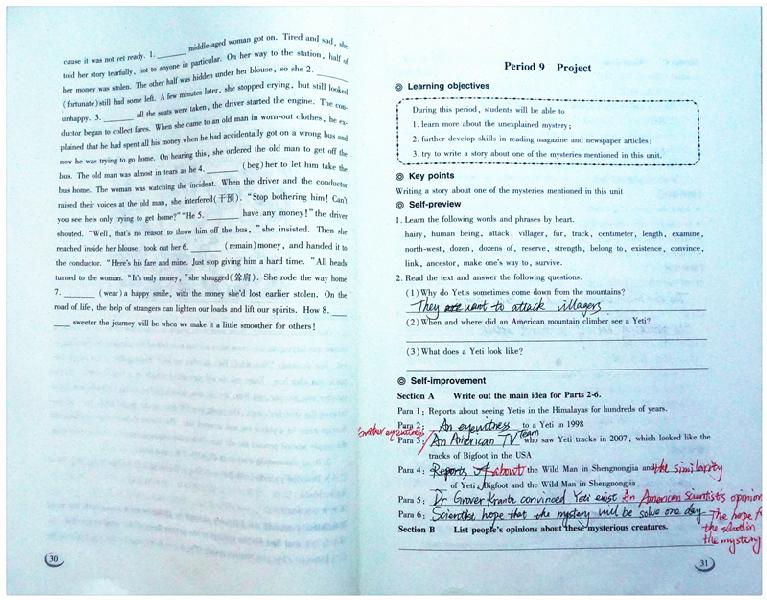 cause it was not yet ready. 1. ________ middle-aged woman got on. Tired and sad, she
told her story tearfully, not to anyone in particular. On her way to the station, half of
her money was stolen. The other half was hidden under her blouse, so she 2. ______
(fortunate) still had some left. A few minutes later, she stopped crying, but still looked
unhappy. 3. ________ all the seats were taken, the driver started the engine. The con-
ductor began to collect fares. When she came to an old man in worn-out clothes, he ex-
plained that he had spent all his money when he had accidentally got on a wrong bus and
now he was trying to go home. On hearing this, she ordered the old man to get off the
bus. The old man was almost in tears as he 4. ________ (beg) her to let him take the
bus home. The woman was watching the incident. When the driver and the conductor
raised their voices at the old man, she interfered(干预). "Stop bothering him! Can't
you see he's only trying to get home?" "He 5. ________ have any money!" the driver
shouted. "Well, that's no reason to throw him off the bus," she insisted. Then she
reached inside her blouse, took out her 6. ________ (remain) money, and handed it to
the conductor. "Here's his fare and mine. Just stop giving him a hard time." All heads
turned to the woman. "It's only money," she shrugged(耸肩). She rode the way home
7. ________ (wear) a happy smile, with the money she'd lost earlier stolen. On the
road of life, the help of strangers can lighten our loads and lift our spirits. How 8. ____
____ sweeter the journey will be when we make it a little smoother for others!
30
Period 9 Project
Learning objectives
During this period, students will be able to
1. learn more about the unexplained mystery;
2. further develop skills in reading magazine and newspaper articles;
3. try to write a story about one of the mysteries mentioned in this unit.
Key points
Writing a story about one of the mysteries mentioned in this unit
Self-preview
1. Learn the following words and phrases by heart.
hairy, human being, attack, villager, fur, track, centimeter, length, examine,
north-west, dozen, dozens of, reserve, strength, belong to, existence, convince,
link, ancestor, make one's way to, survive.
2. Read the text and answer the following questions.
(1) Why do Yetis sometimes come down from the mountains?
They want to attack villagers
(2) When and where did an American mountain climber see a Yeti?
(3) What does a Yeti look like?
Self-improvement
Section A Write out the main idea for Parts 2-6.
Para 1: Reports about seeing Yetis in the Himalayas for hundreds of years.
Para 2: An eyewitness to a Yeti in 1998
Another eyewitness
Para 3: An American TV Team who saw Yeti tracks in 2007, which looked like the
tracks of Bigfoot in the USA
Para 4: Reports about the Wild Man in Shengnongjia and the similarity
of Yeti, Bigfoot and the Wild Man in Shengnongjia
Para 5: Dr Grover Krantz convinced Yeti exist An American scientist's opinion
Para 6: Scientist hope that the mystery will be solve one day The hope
the mystery
Section B List people's opinions about these mysterious creatures.
31